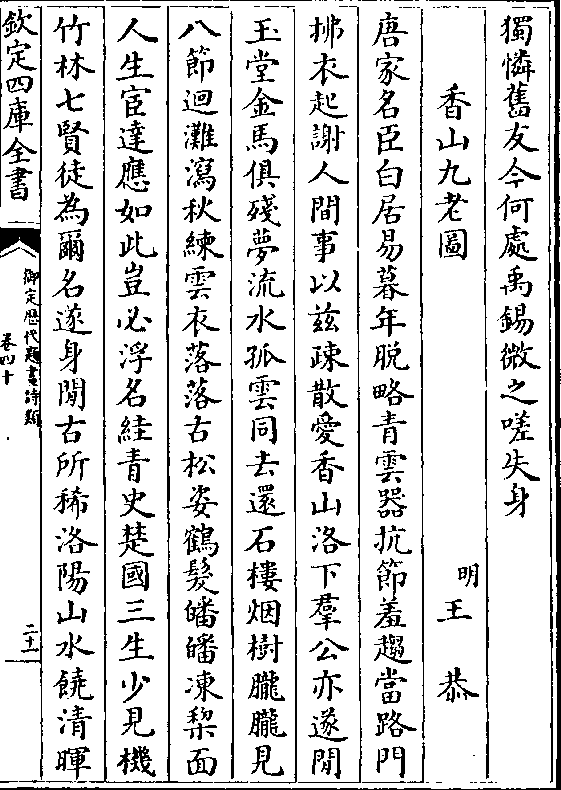 獨憐舊友今何處禹錫微之嗟失身
香山九老圖
明王恭
唐家名臣白居易暮年脱略青雲器抗節羞趨當路門
拂衣起謝人間事以兹疎散愛香山洛下羣公亦遂閒
玉堂金馬俱殘夢流水孤雲同去還石樓烟樹朧朧見
八節迴灘瀉秋練雲衣落落古松姿鶴髪皤皤凍梨面
人生宦達應如此豈必浮名絓青史楚國三生少見機
竹林七賢徒為爾名遂身閒古所稀洛陽山水饒清暉
欽定四庫全書
御定歴代題畫詩類
卷四十
二十一